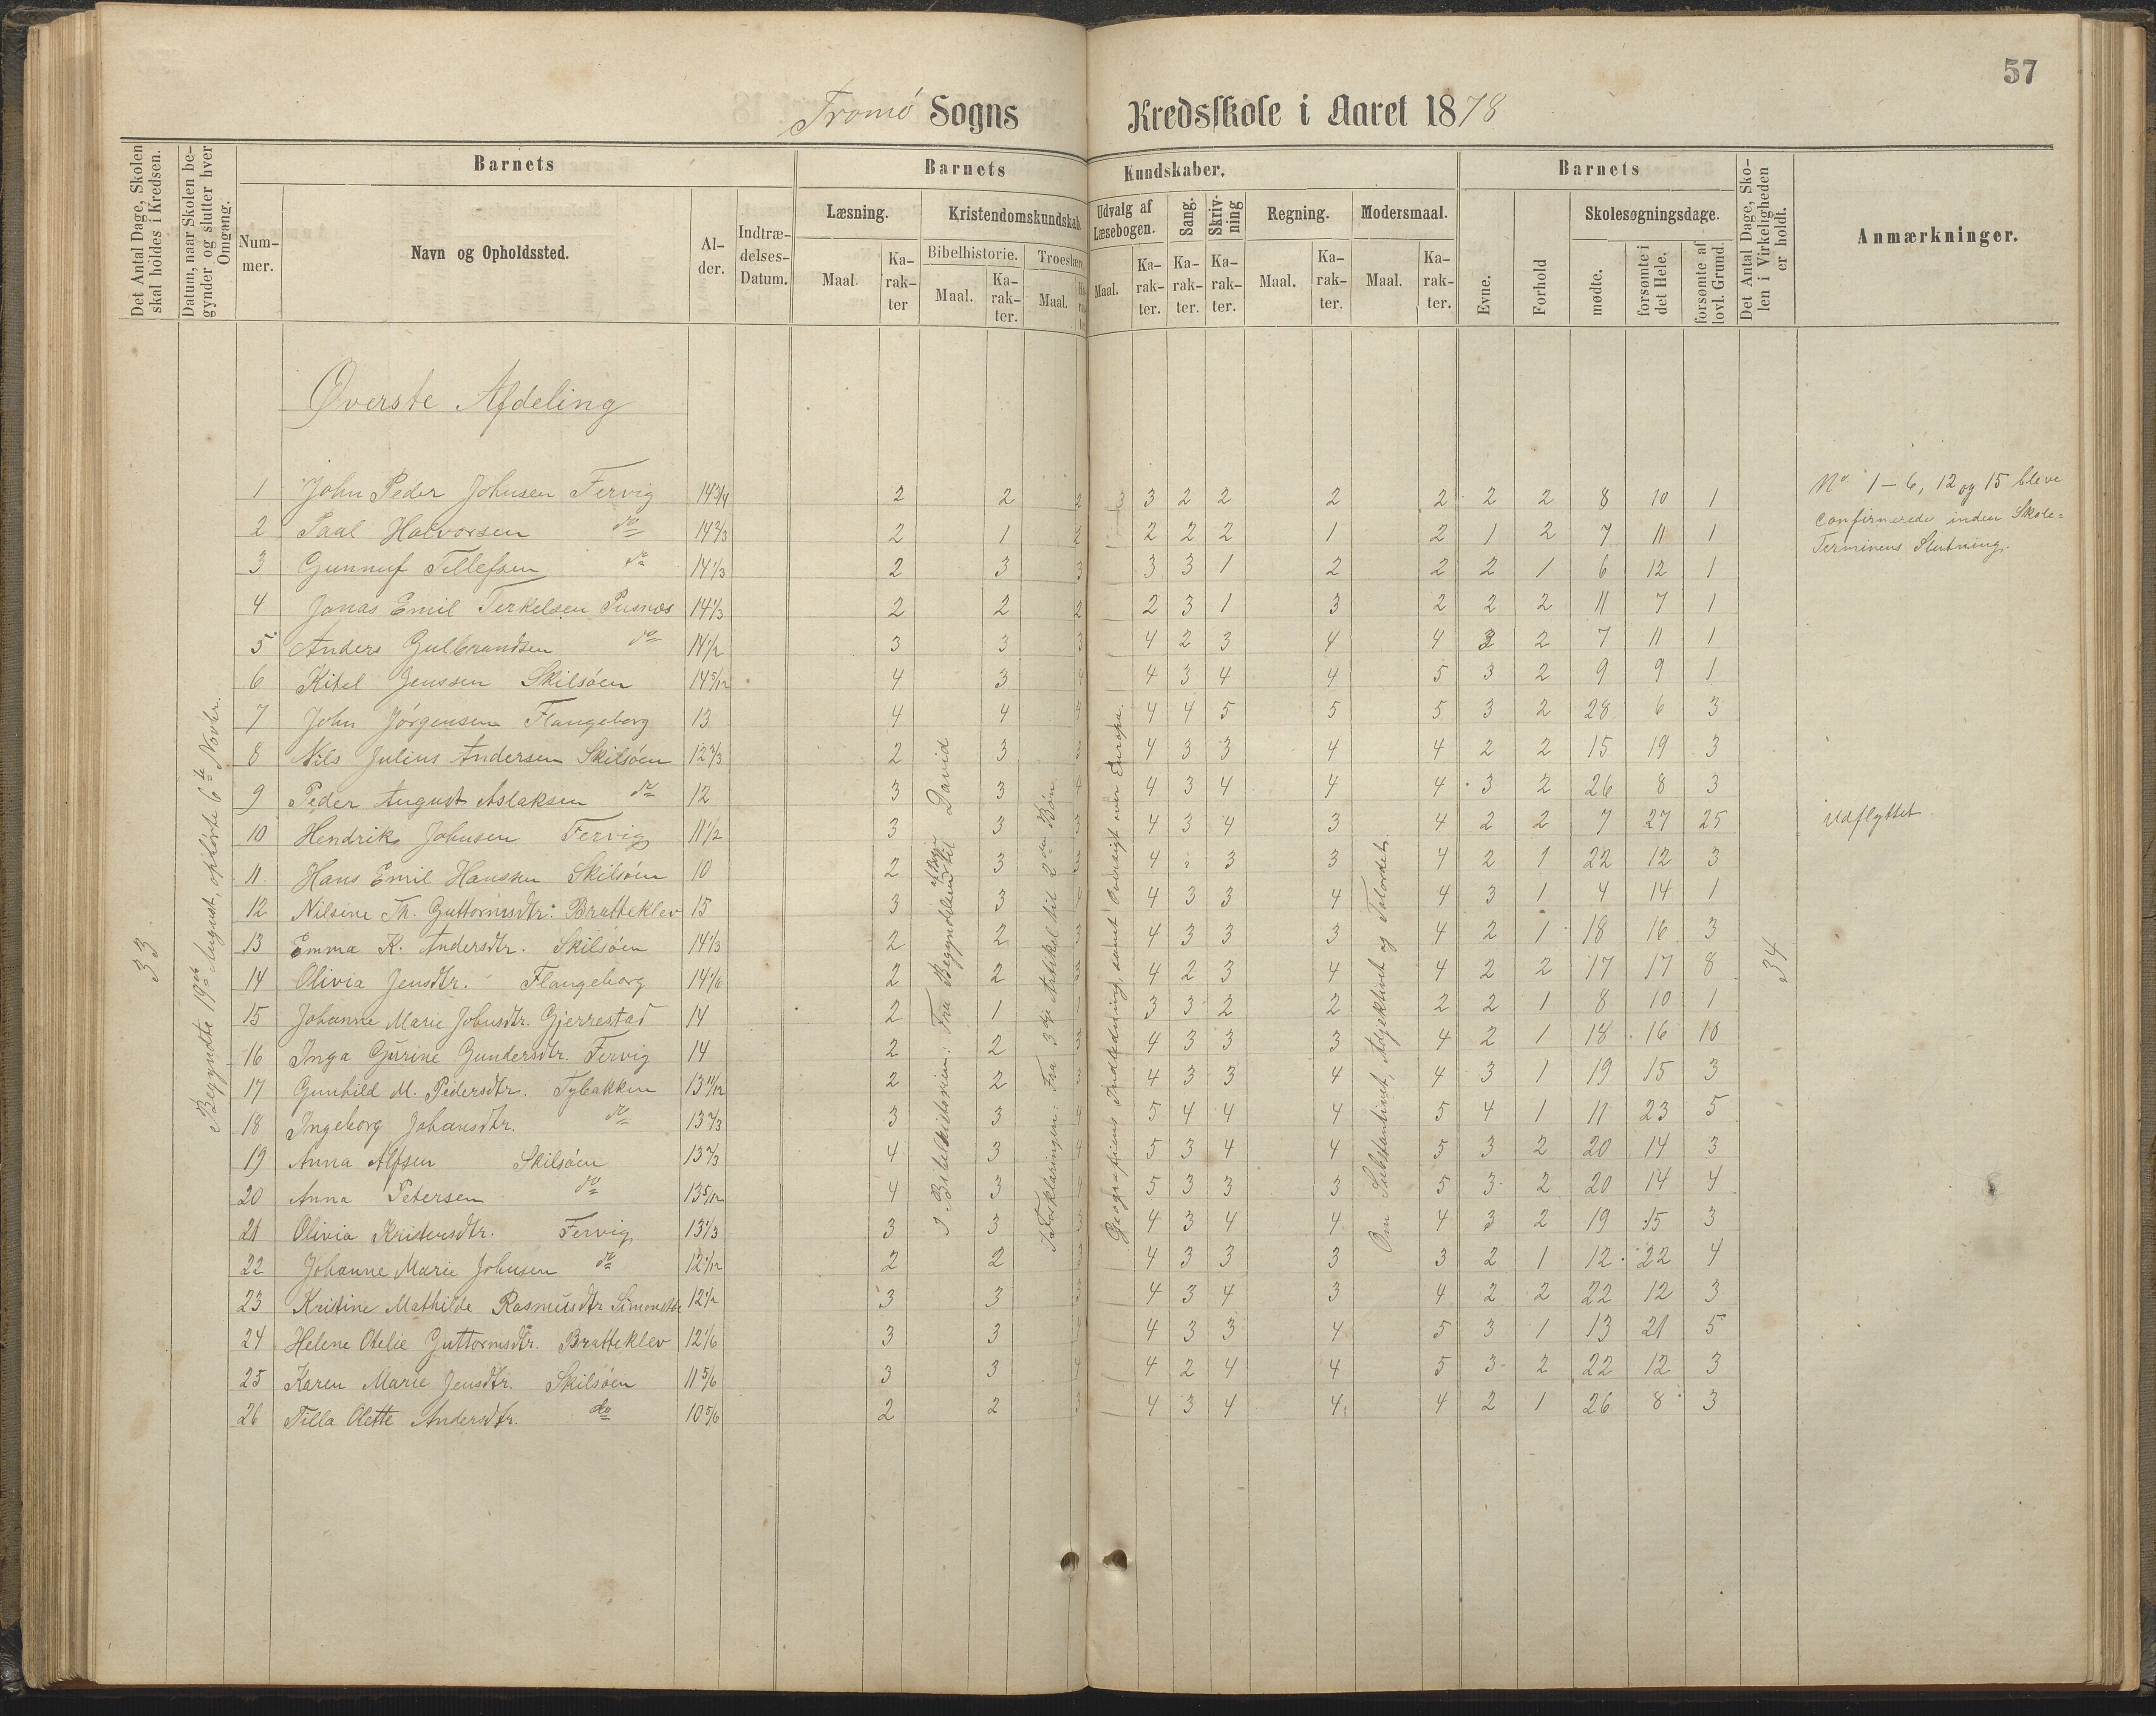 57
Tromø Sogns Kredsskole i Aaret 1878
Det Antal Dage, Skolen skal holdes i Kredsen.
Datum, naar Skolen begynder og slutter hver Omgang.
Barnets
Nummer.
Navn og Opholdssted.
Alder.
Indtrædelses-Datum.
Barnets Kundskaber.
Læsning.
Maal.
Karakter
Kristendomskundskab.
Bibelhistorie.
Maal.
Karakter.
Troeslære.
Maal.
Udvalg af Læsebogen.
Maal.
Karakter.
Sang.
Karakter.
Skrivning
Karakter.
Regning.
Maal.
Karakter.
Modersmaal.
Maal.
Karakter.
Barnets
Evne.
Forhold
Skolesøgningsdage.
mødte.
forsømte i det Hele.
forsømte af lovl. Grund.
Det Antal Dage, Skolen i Virkeligheden er holdt.
Anmærkninger.
Øverste Afdeling
33
Begyndte 19de August, ophørte 6te Novbr.
1 John Peder Johnsen Fervig 14 3/4 2 2 2 3 2 2 2 2 2 2 8 10 1
2 Paal Halvorsen do 14 2/3 2 1 2 2 2 2 1 2 1 2 7 11 1
3 Gunnuf Tellefsen do 14 1/3 2 3 3 3 3 1 2 2 2 1 6 12 1
4 Jonas Emil Terkelsen Pusnes 14 1/3 2 2 2 2 3 1 3 2 2 2 11 7 1
5 Anders Gulbrandsen do 14 1/2 3 3 3 4 2 3 4 4 3 2 7 11 1
6 Kitel Jenssen Skilsøen 14 5/12 4 3 4 4 3 4 4 5 3 2 9 9 1
7 John Jørgensen Flangeborg 13 4 4 4 4 4 5 5 5 3 2 28 6 3
8 Nils Julius Andersen Skilsøen 12 2/3 2 3 3 4 3 3 4 4 2 2 15 19 3
9 Peder August Aslaksen do 12 3 3 4 4 3 4 4 4 3 2 26 8 3
10 Hendrik Johnsen Fervig 11 1/2 3 3 3 4 3 4 3 4 2 2 7 27 25 udflyttet
11 Hans Emil Hanssen Skilsøen 10 2 3 3 4 " 3 3 4 2 1 22 12 3
12 Nilsine Th. Guttormsdtr: Bratteklev 15 3 3 4 3 3 4 4 3 1 4 14 1
13 Emma K. Andersdtr. Skilsøen 14 1/3 2 2 3 4 3 3 3 4 2 1 18 16 3
14 Olivia Jensdtr. Flangeborg 14 1/6 2 2 3 4 2 3 4 4 2 2 17 17 8
15 Johanne Marie Johnsdtr. Gjerrestad 14 2 1 3 3 2 2 2 2 1 8 10 1
16 Inga Gurine Gundersdtr. Fervig 14 2 2 3 4 3 3 3 4 2 1 18 16 10
17 Gunhild M. Pedersdtr. Tybakken 13 11/12 2 2 3 4 3 3 4 4 3 1 19 15 3
18 Ingeborg Johansdtr. do 13 2/3 3 3 4 5 4 4 4 5 4 1 11 23 5
19 Anna Alfsen Skilsøen 13 2/3 4 3 4 5 3 4 4 5 3 2 20 14 3
20 Anna Petersen do 13 5/12 4 3 4 5 3 3 3 5 3 2 20 14 4
21 Olivia Kristensdtr. Fervig 13 1/3 3 3 3 4 3 4 4 4 3 2 19 15 3
22 Johanne Marie Johnsen do 12 1/12 2 2 3 4 3 3 3 3 2 1 12 22 4
23 Kristine Mathilde Rasmusdtr 12 1/2 3 3 3 4 3 4 3 4 2 2 22 12 3
24 Helene Otelie Guttormsdtr. Bratteklev 12 1/6 3 3 4 4 3 3 4 5 3 1 13 21 5
25 Karen Marie Jensdtr. Skilsøen 11 5/6 3 3 4 4 2 4 4 5 3 2 22 12 3
26 Tilla Olette Andersdtr. do 10 5/6 2 2 3 4 3 4 4 4 2 1 26 8 3
I Bibelhistorien: Fra Begyndelsen til David
I Forklaringen: Fra 3die Artikel til 2den Bøn.
Geografiens Indledning, samt Oversigt over Europa.
Om Substantivet, Adjektivet og Talordet.
34
No 1-6, 12 og 15 bleve
confirmerede inden Skole=
Terminens Slutning.